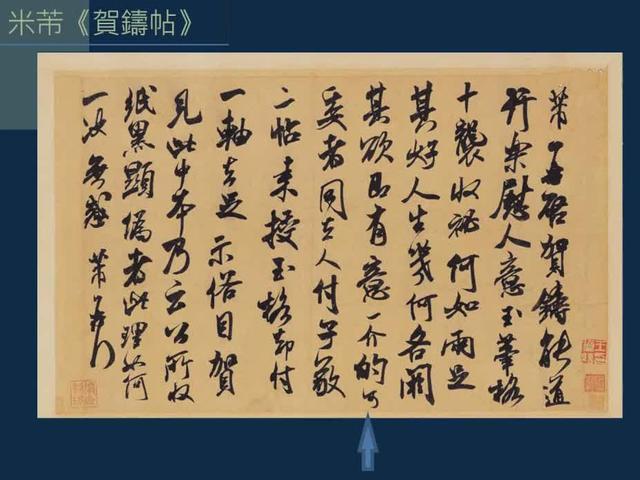 米芾《賀鑄帖》
芾再啓賀鑄能道
行樂慰人意玉筆格
十襲收秘何如兩足
其好人生幾何各閼
其欲即有意一介的可
委者同去人付子敬
二帖来授玉格却付
一軸去足示俗目賀
見此中本乃云公所收
紙黑顯偽者此理如何
一決無惑 芾再行